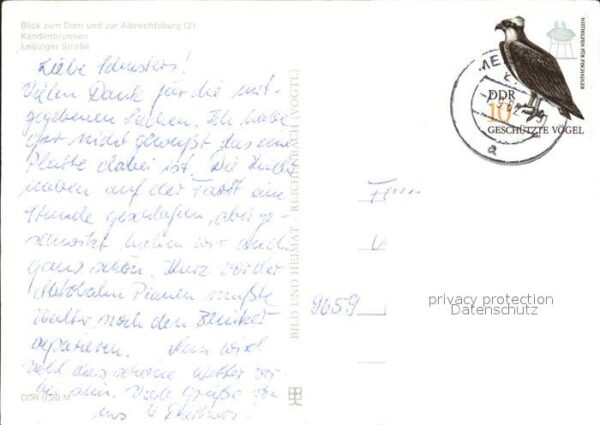 Blick zum Dom und zur Albrechtsburg (2)
Kändlerbrunnen
Leipziger Straße
Liebe
Vielen Dank für die mit-
gegebenen Sachen. Ich habe
gar nicht gewußt das eine
Platte dabei ist. Die Kinder
haben auf der Fahrt eine
Stunde geschlafen, aber ge-
schwitzt haben wir auch
ganz schön. Kurz vor der
Autobahn mußte
Walter noch den Blinker
reparieren. Nun wird
wohl das schöne Wetter vor-
bei sein. Viele Grüße von
uns 4
DDR 0,20 M
BILD UND HEIMAT REICHENBACH (VOGTL)
NISTHILFEN FÜR FISCHADLER
DDR
10
GESCHÜTZTE VÖGEL
a
9659
privacy protection
Datenschutz